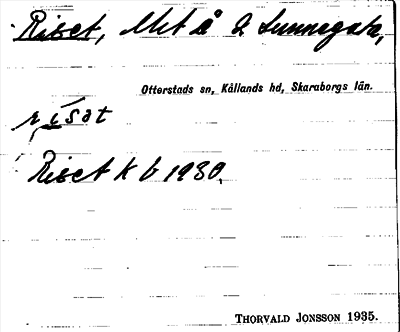 Riset, Mt å 2 Sunnegata,
Otterstads sn, Kållands hd, Skaraborgs län.
rísat
Riset k b 1930.
THORVALD JONSSON 1935.